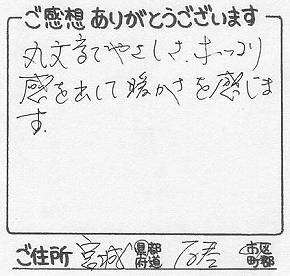 ご感想 ありがとうございます
丸文字でやさしさ、まったり
感を出して暖かさを感じま
す。
ご住所 宮城 県都府道 市区町郡